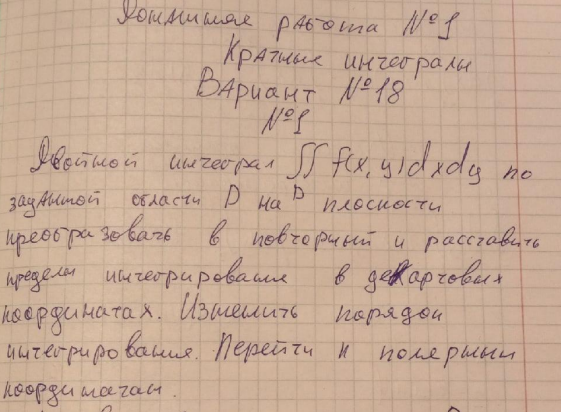 Домашняя работа №1
Кратные интегралы
Вариант №18
№1
Двойной интеграл ∬ f(x,y)dxdy по
D
заданной области D на плоскости
преобразовать в повторный и расставить
пределы интегрирования в декартовых
координатах. Изменить порядок
интегрирования. Перейти к полярным
координатам.